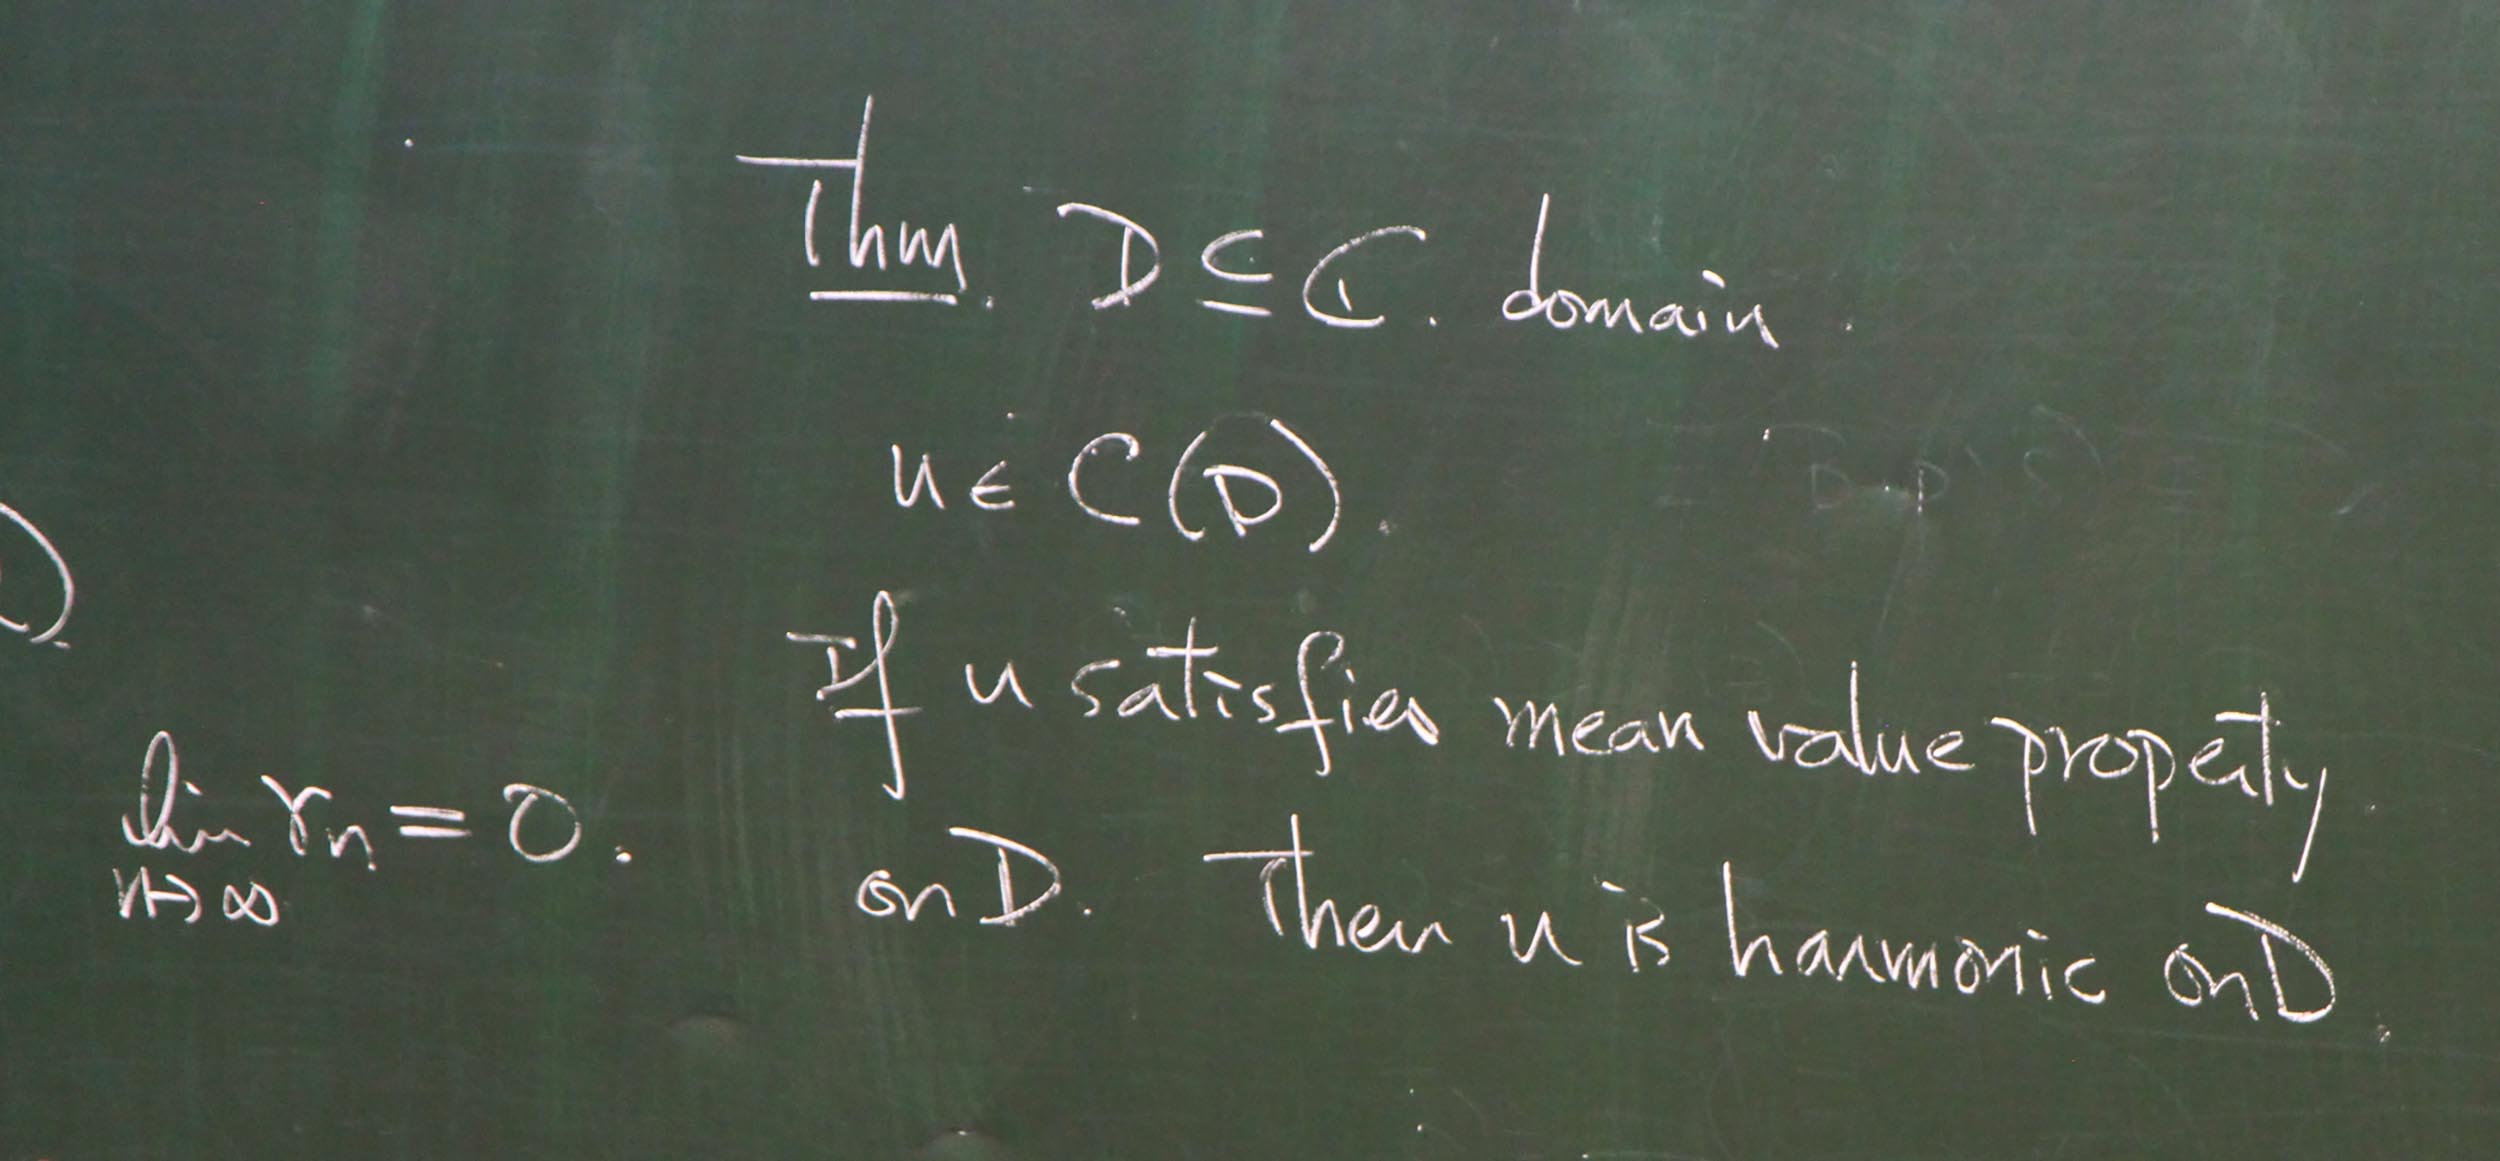 Thm. D ⊆ ℂ. domain.
u ∈ C(D).
If u satisfies mean value property
on D. Then u is harmonic on D.
).
lim rₙ = 0.
n→∞